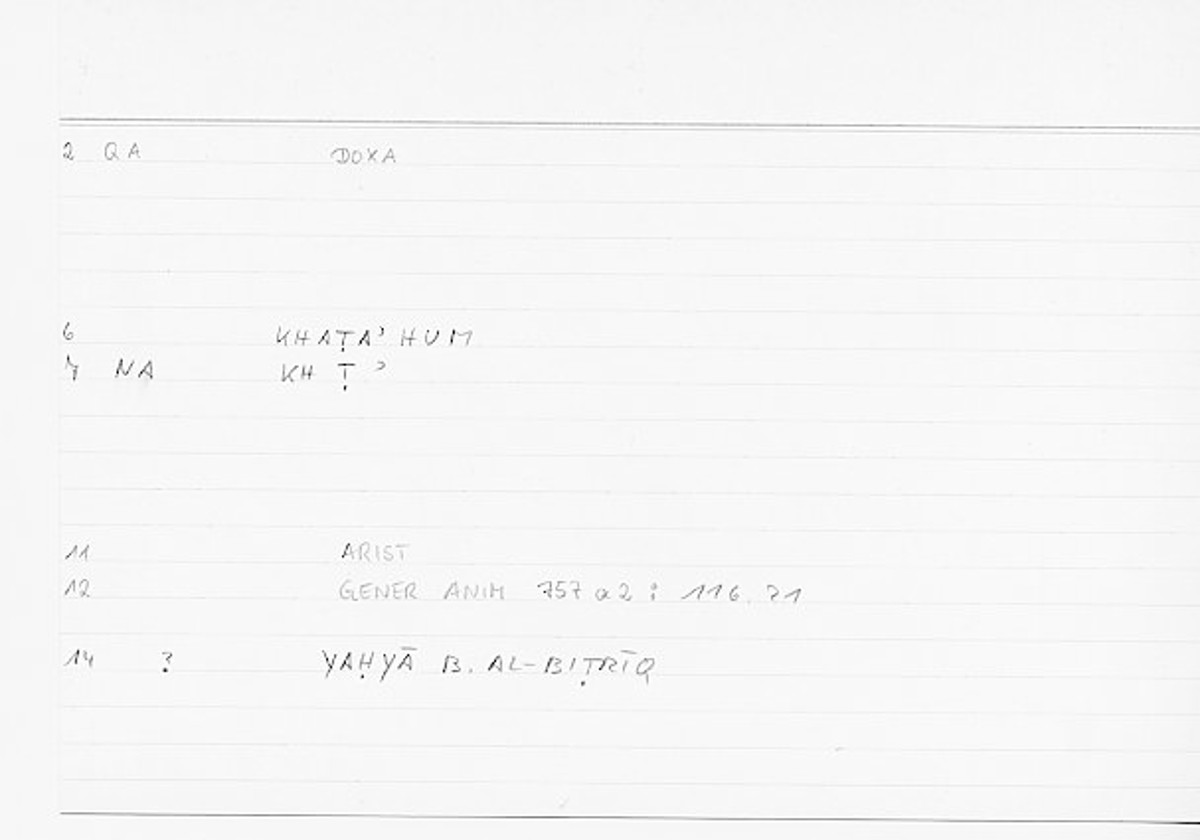 2 QA DOXA
6 KHAṬAʾHUM
7 NA KH Ṭ ʾ
11 ARIST
12 GENER ANIM 757 a 2 : 116.21
14 ? YAḤYĀ B. AL-BIṬRĪQ